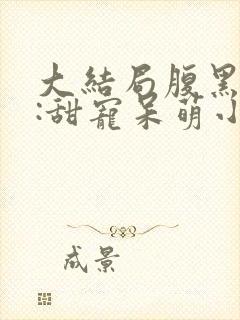 大结局腹黑
:甜宠呆萌小
成景